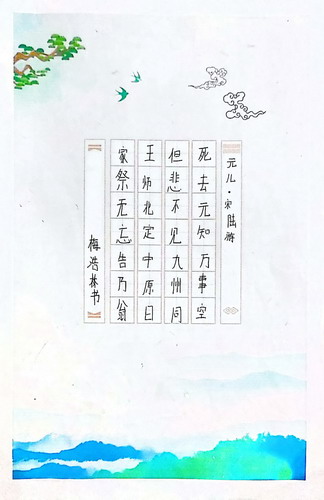 元儿·宋 陆游
死去元知万事空
但悲不见九州同
王师北定中原日
家祭无忘告乃翁
梅浩林书